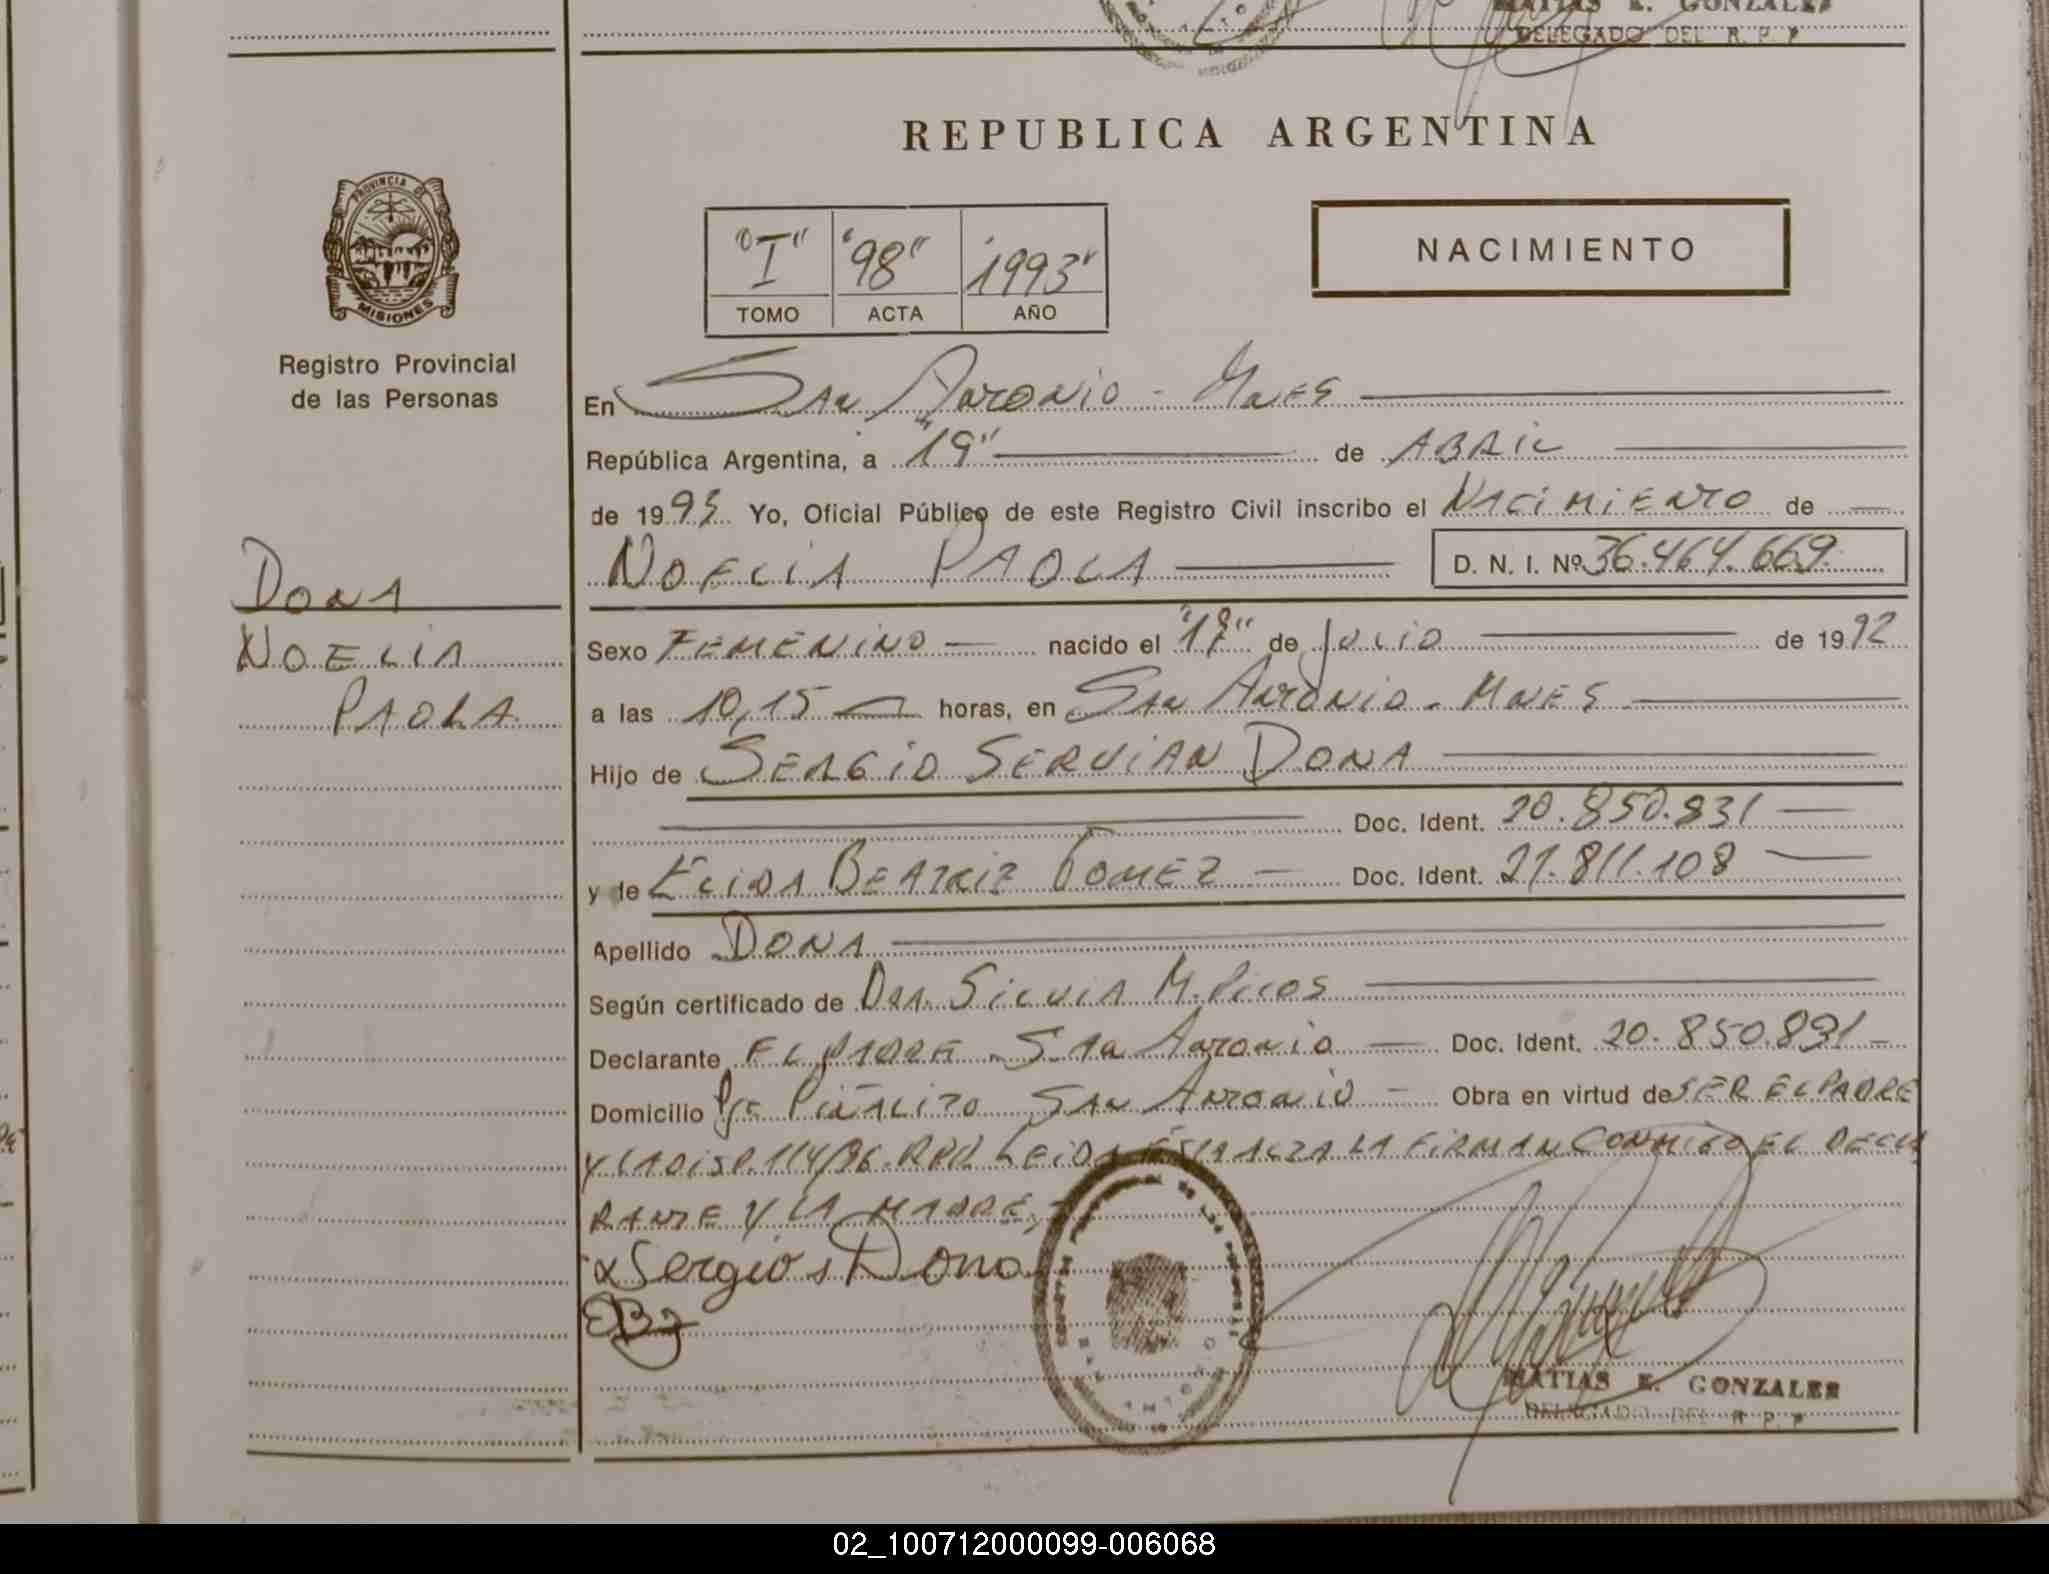 MATIAS E. GONZALEZ
DELEGADO DEL R. P. P
REPUBLICA ARGENTINA
PROVINCIA DE
MISIONES
Registro Provincial
de las Personas
"I" "98" "1993"
TOMO ACTA AÑO
NACIMIENTO
En San Antonio - Mnes
República Argentina, a "19" de ABRIL
de 1993 Yo, Oficial Público de este Registro Civil inscribo el NACIMIENTO de
NOELIA PAOLA D. N. I. Nº 36.464.669
DONA
NOELIA
PAOLA
Sexo FEMENINO nacido el de JULIO de 1992
a las 10,15 horas, en SAN ANTONIO - MNES
Hijo de SERGIO SERVIAN DONA
Doc. Ident. 20.850.831
y de ELIDA BEATRIZ GOMEZ Doc. Ident. 21.811.108
Apellido DONA
Según certificado de DRA. SILVIA M.
Declarante EL PADRE - SAN ANTONIO Doc. Ident. 20.850.831
Domicilio Pje PIÑALITO SAN ANTONIO - Obra en virtud de SER EL PADRE
Y LA DISP. 114/86. RPP. LEIDA EL ACTA LA FIRMAN CONMIGO EL DECLA
RANTE Y LA MADRE.
Sergio s Dona
MATIAS E. GONZALEZ
DELEGADO DEL R. P. P
02_100712000099-006068